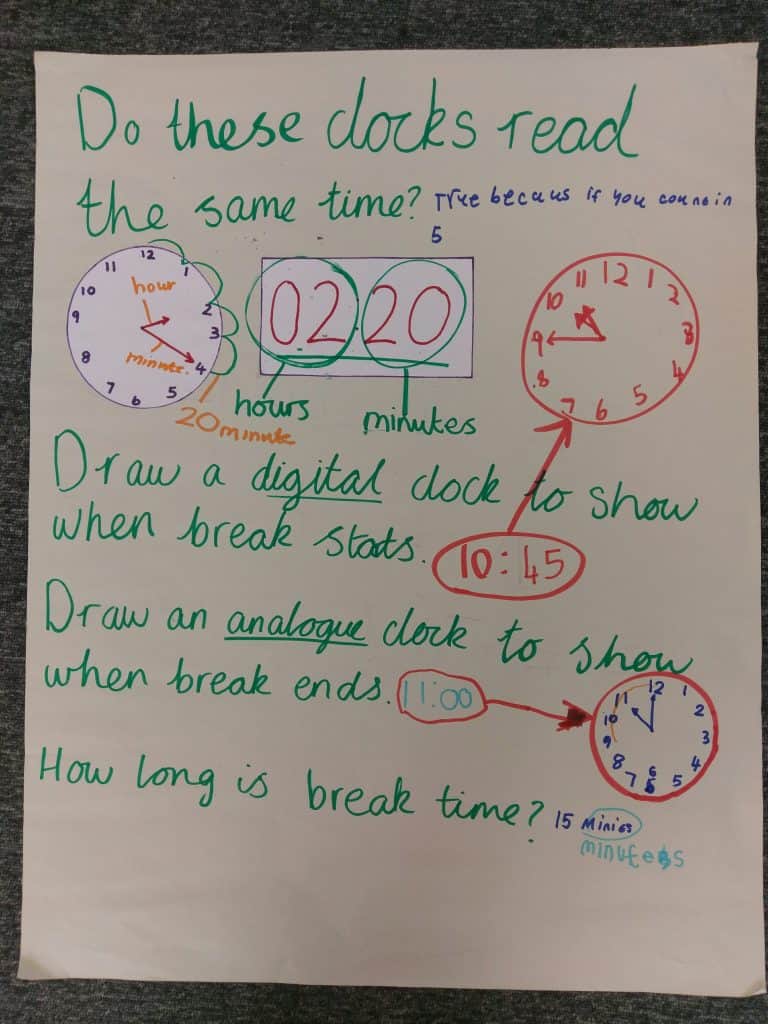 Do these clocks read
the same time? True becaus if you counoin
5
12
11 1
10 hour 2
9 3
minute.
8 4
7 6 5
20 minute
02 20
hours minutes
11 12 1
10 2
9 3
8 4
7 6 5
Draw a digital clock to show
when break stats.
10:45
Draw an analogue clock to show
when break ends. 11:00
11 12 1
10 2
9 3
8 4
7 6 5
6
How long is break time? 15 minies
minutees